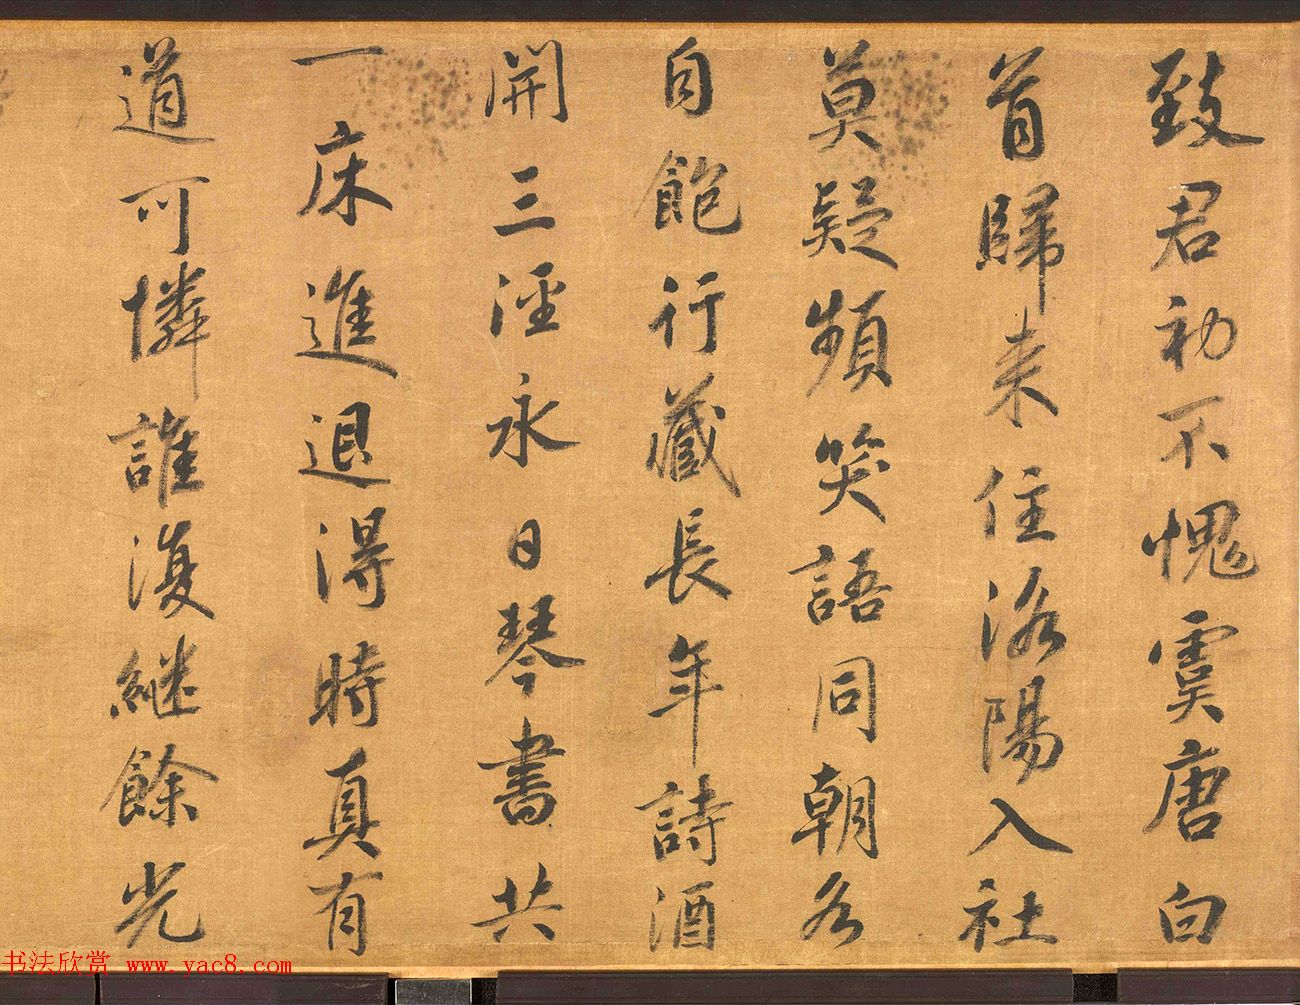 致君初不愧虞唐白
首歸来住洛陽入社
莫疑頻笑語同朝各
自飽行藏長年詩酒
開三涇永日琴書共
一床進退得時真有
道可憐誰復継餘光
书法欣赏 www.yac8.com